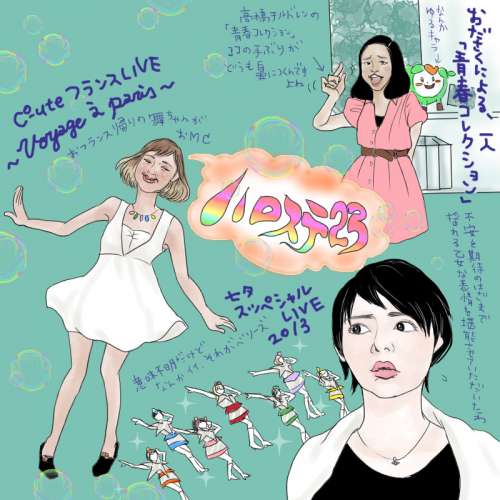 ℃-ute フランスLIVE
～Voyage à Paris～
おフランス帰りの舞ちゃんが
おMC
高橋チルドレンの
「青春コレクション」
ココの手ぶりが
どうも鼻につくんです
よね
なんか
ゆるキャラ
おださくによる、一人
「青春コレクション」
ハロステ23
不安と期待のはざまで
揺れる乙女な表情を堪能させていただいたわ
七夕
スッペシャル
LIVE
2013
意味不明だけど
なんかイイ、それがベリーズ